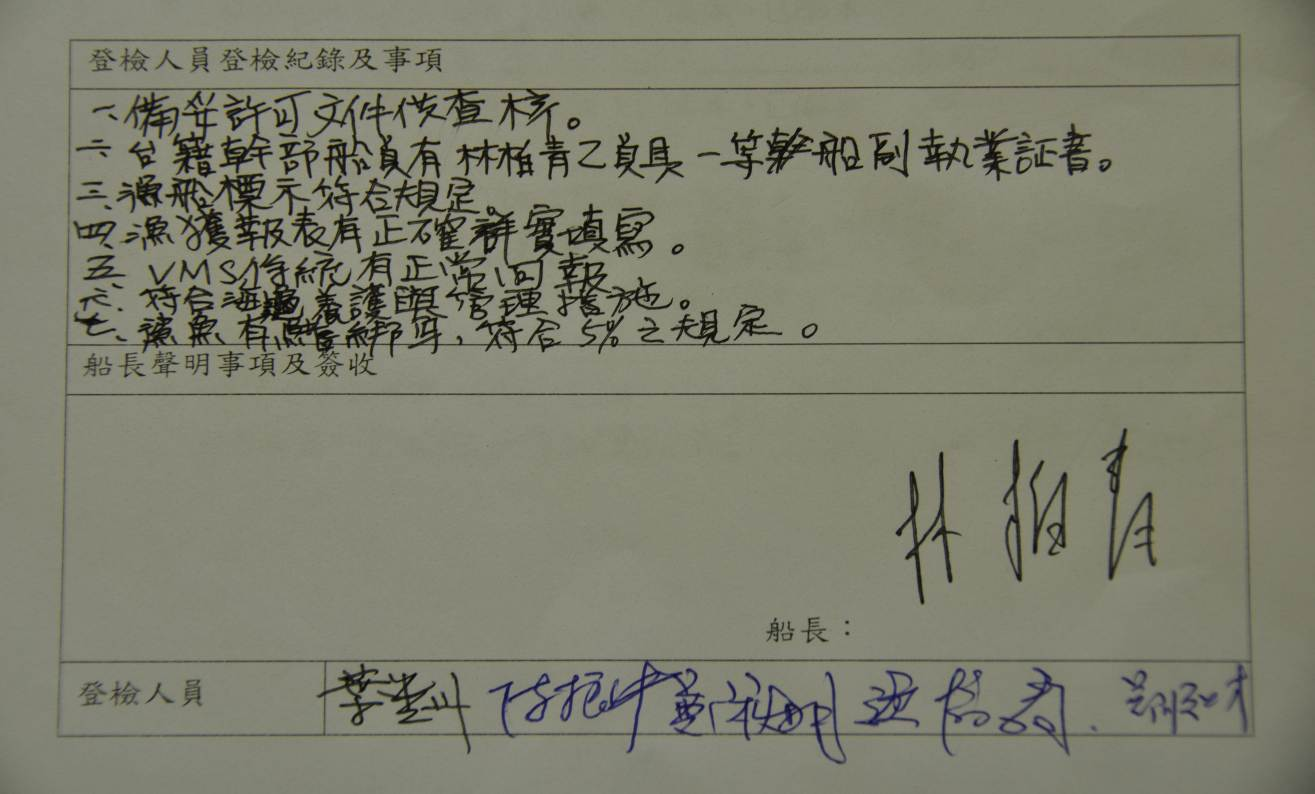 登檢人員登檢紀錄及事項
一、備妥許可文件供查核。
二、台籍幹部船員有林柏青乙員具一等船副執業証書。
三、漁船標示符合規定。
四、漁獲報表有正確詳實填寫。
五、VMS係統有正常回報
六、符合海鳥養護與管理措施。
七、鯊魚有綁身,符合5%之規定。
船長聲明事項及簽收
林柏青
船長:
登檢人員